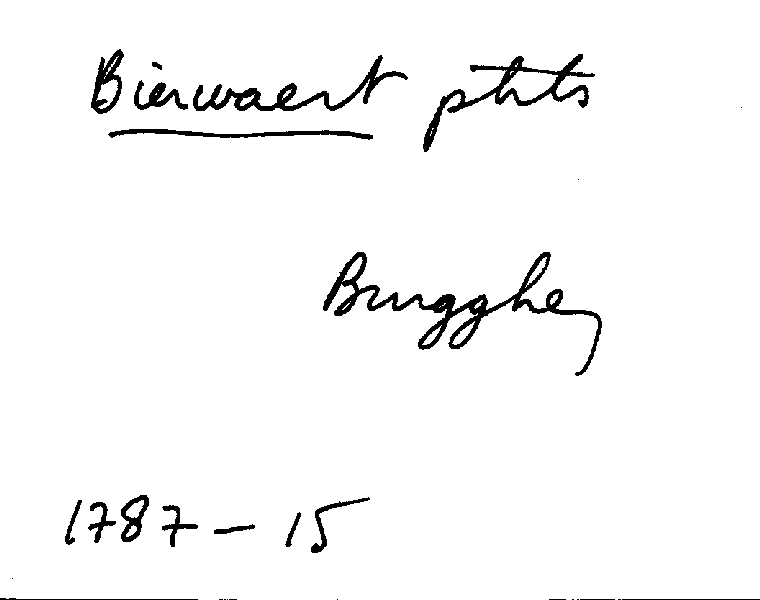 Bierwaert ptrts
Brugghe
1787 - 15